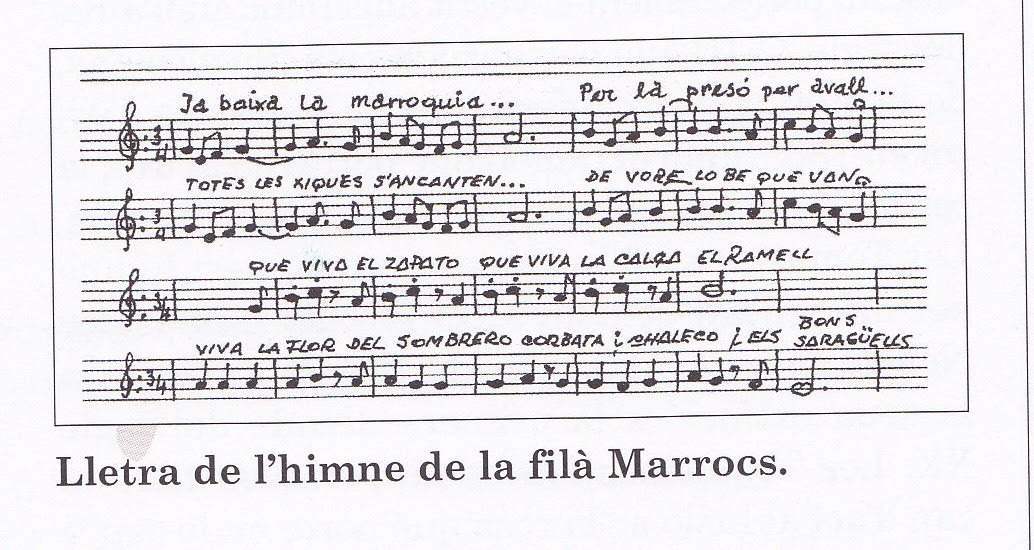 Ja baixa la marroquia... Per la presó per avall...
TOTES LES XIQUES S'ANCANTEN... DE VORE LO BE QUE VAN
QUE VIVA EL ZAPATO QUE VIVA LA CALÇA EL RAMELL
VIVA LA FLOR DEL SOMBRERO CORBATA i CHALECO i ELS BONS SARAGÜELLS
Lletra de l'himne de la filà Marrocs.